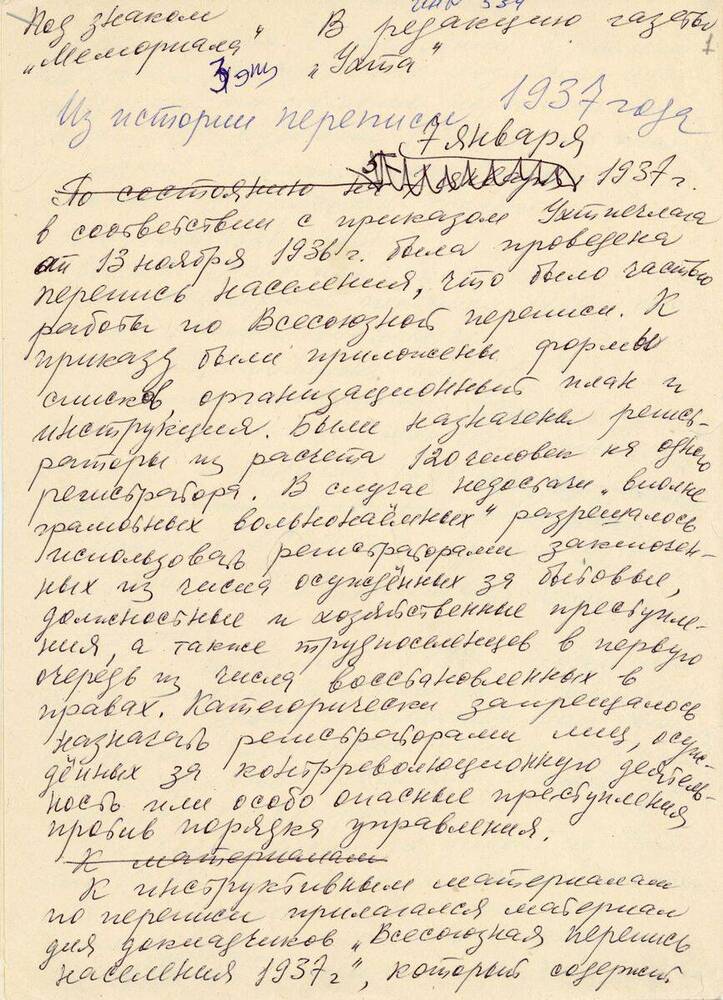 Под знаком
„Мемориала"
В редакцию газеты
„Ухта"
1
Из истории переписи 1937 года
7 января
По состоянию на 1937 г.
в соответствии с приказом Ухтпечлага
от 13 ноября 1936 г. была проведена
перепись населения, что было частью
работы по Всесоюзной переписи. К
приказу были приложены формы
списков, организационный план и
инструкция. Были назначены регист-
раторы из расчета 120 человек на одного
регистратора. В случае недостачи „вполне
грамотных вольнонаёмных" разрешалось
использовать регистраторами заключен-
ных из числа осуждённых за бытовые,
должностные и хозяйственные преступле-
ния, а также трудпоселенцев в первую
очередь из числа восстановленных в
правах. Категорически запрещалось
назначать регистраторами лиц, осуж-
дённых за контрреволюционную деятель-
ность или особо опасные преступления
против порядка управления.
К материалам
К инструктивным материалам
по переписи прилагался материал
для докладчиков „Всесоюзная перепись
населения 1937 г", который содержит